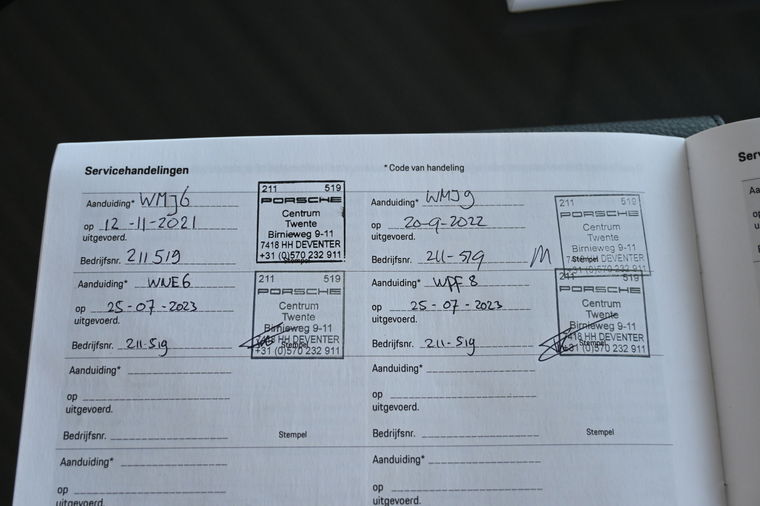 Servicehandelingen
* Code van handeling
Aanduiding* WMJ6
op 12-11-2021
uitgevoerd.
Bedrijfsnr. 211519
211 519
PORSCHE
Centrum
Twente
Birnieweg 9-11
7418 HH DEVENTER
+31 (0)570 232 911
Stempel
Aanduiding* WMJ9
op 20-9-2022
uitgevoerd.
Bedrijfsnr. 211-519
211 519
PORSCHE
Centrum
Twente
Birnieweg 9-11
7418 HH DEVENTER
+31 (0)570 232 911
Stempel
Aanduiding* WNE6
op 25-07-2023
uitgevoerd.
Bedrijfsnr. 211-519
211 519
PORSCHE
Centrum
Twente
Birnieweg 9-11
7418 HH DEVENTER
+31 (0)570 232 911
Stempel
Aanduiding* WPF8
op 25-07-2023
uitgevoerd.
Bedrijfsnr. 211-519
211 519
PORSCHE
Centrum
Twente
Birnieweg 9-11
7418 HH DEVENTER
+31 (0)570 232 911
Stempel
Aanduiding*
op
uitgevoerd.
Bedrijfsnr.
Stempel
Aanduiding*
op
uitgevoerd.
Bedrijfsnr.
Stempel
Aanduiding*
op
uitgevoerd.
Aanduiding*
op
uitgevoerd.